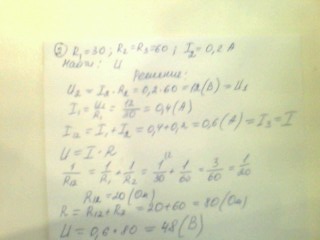 ② R₁=30; R₂=R₃=60; I₂=0,2 А
Найти: U
Решение:
U₂ = I₂·R₂ = 0,2·60 = 12(В) = U₁
I₁ = U₁/R₁ = 12/30 = 0,4(А)
I₁₂ = I₁+I₂ = 0,4+0,2 = 0,6(А) = I₃ = I
U = I·R
1/R₁₂ = 1/R₁ + 1/R₂ = 1/30 + 1/60 = 3/60 = 1/20
R₁₂ = 20(Ом)
R = R₁₂+R₃ = 20+60 = 80(Ом)
U = 0,6·80 = 48(В)